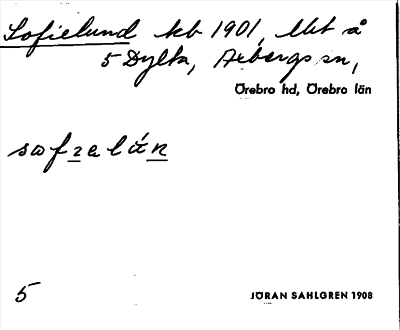 Sofielund kb 1901, lht å
5 Dylta, Axbergs sn,
Örebro hd, Örebro län
sωfɿɐlán
5
JÖRAN SAHLGREN 1908